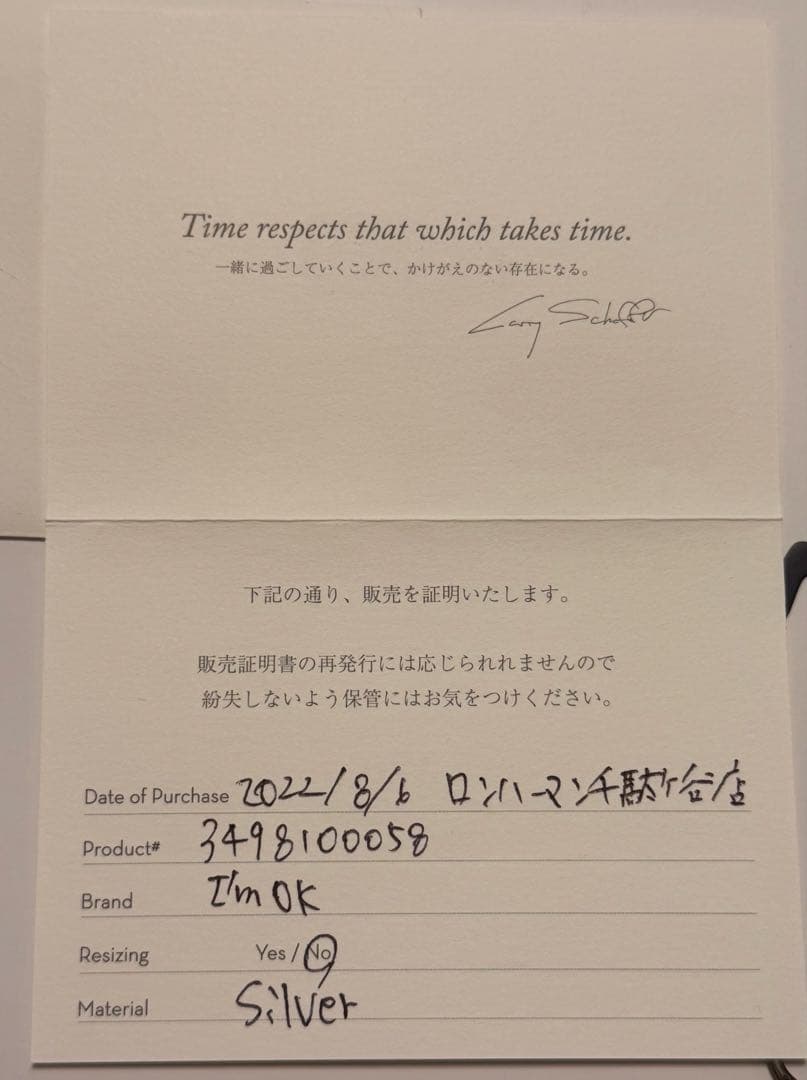 Time respects that which takes time.
一緒に過ごしていくことで、かけがえのない存在になる。
Larry
下記の通り、販売を証明いたします。
販売証明書の再発行には応じられれませんので
紛失しないよう保管にはお気をつけください。
Date of Purchase 2022/8/6 ロンハーマン千駄ヶ谷店
Product# 3498100058
Brand I'm OK
Resizing Yes / No
Material Silver